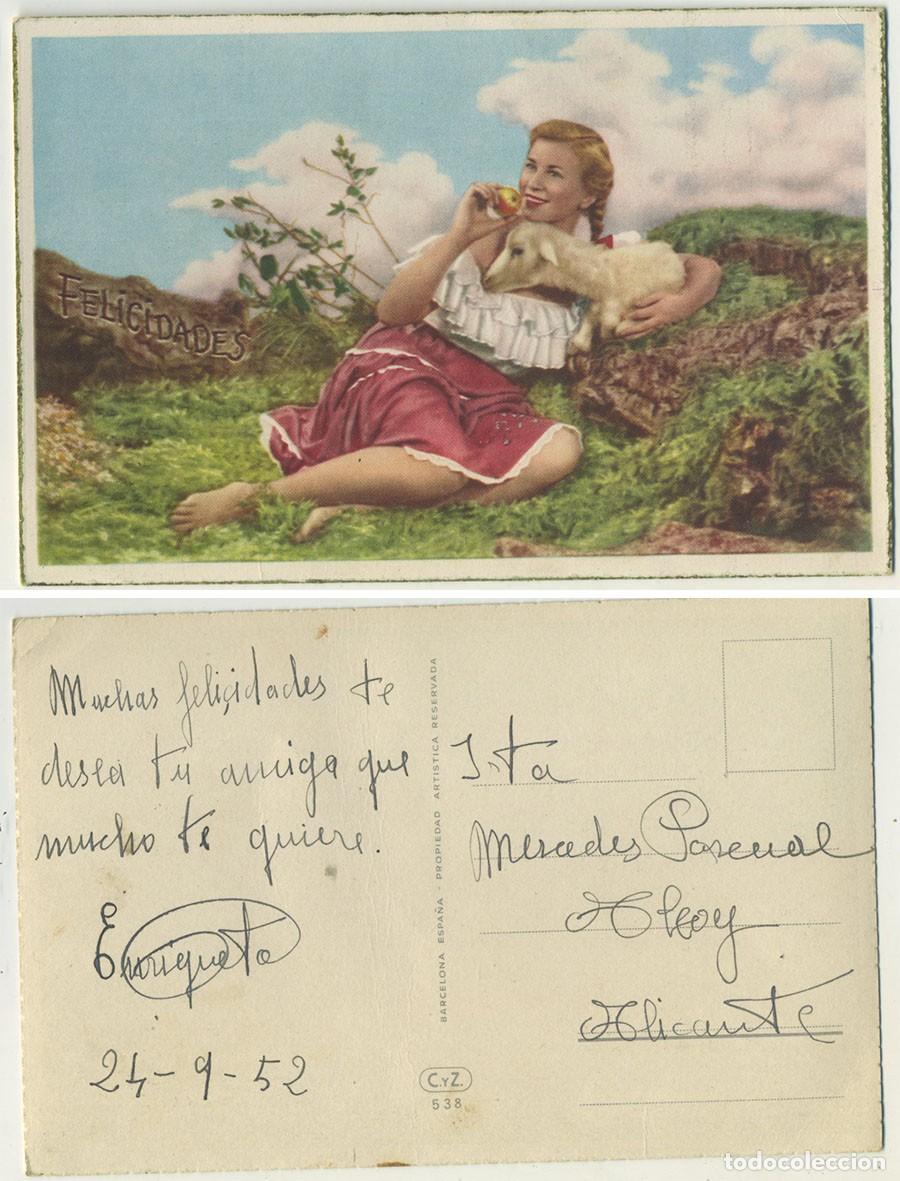 FELICIDADES
Muchas felicidades te
desea tu amiga que
mucho te quiere.
Enriqueta
24-9-52
BARCELONA ESPAÑA - PROPIEDAD ARTISTICA RESERVADA
C.YZ.
538
Srta
Mercedes Pascual
Alcoy
Alicante
todocoleccion